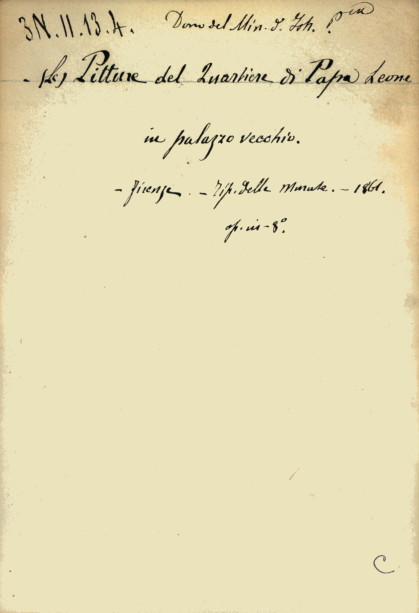 3N.11.13.4. Dono del Min. d. Ist. P.ca
- (Le) Pitture del Quartiere di Papa Leone
in palazzo vecchio.
- Firenze. - Tip. delle Murate. - 1861.
op. in-8°.
C